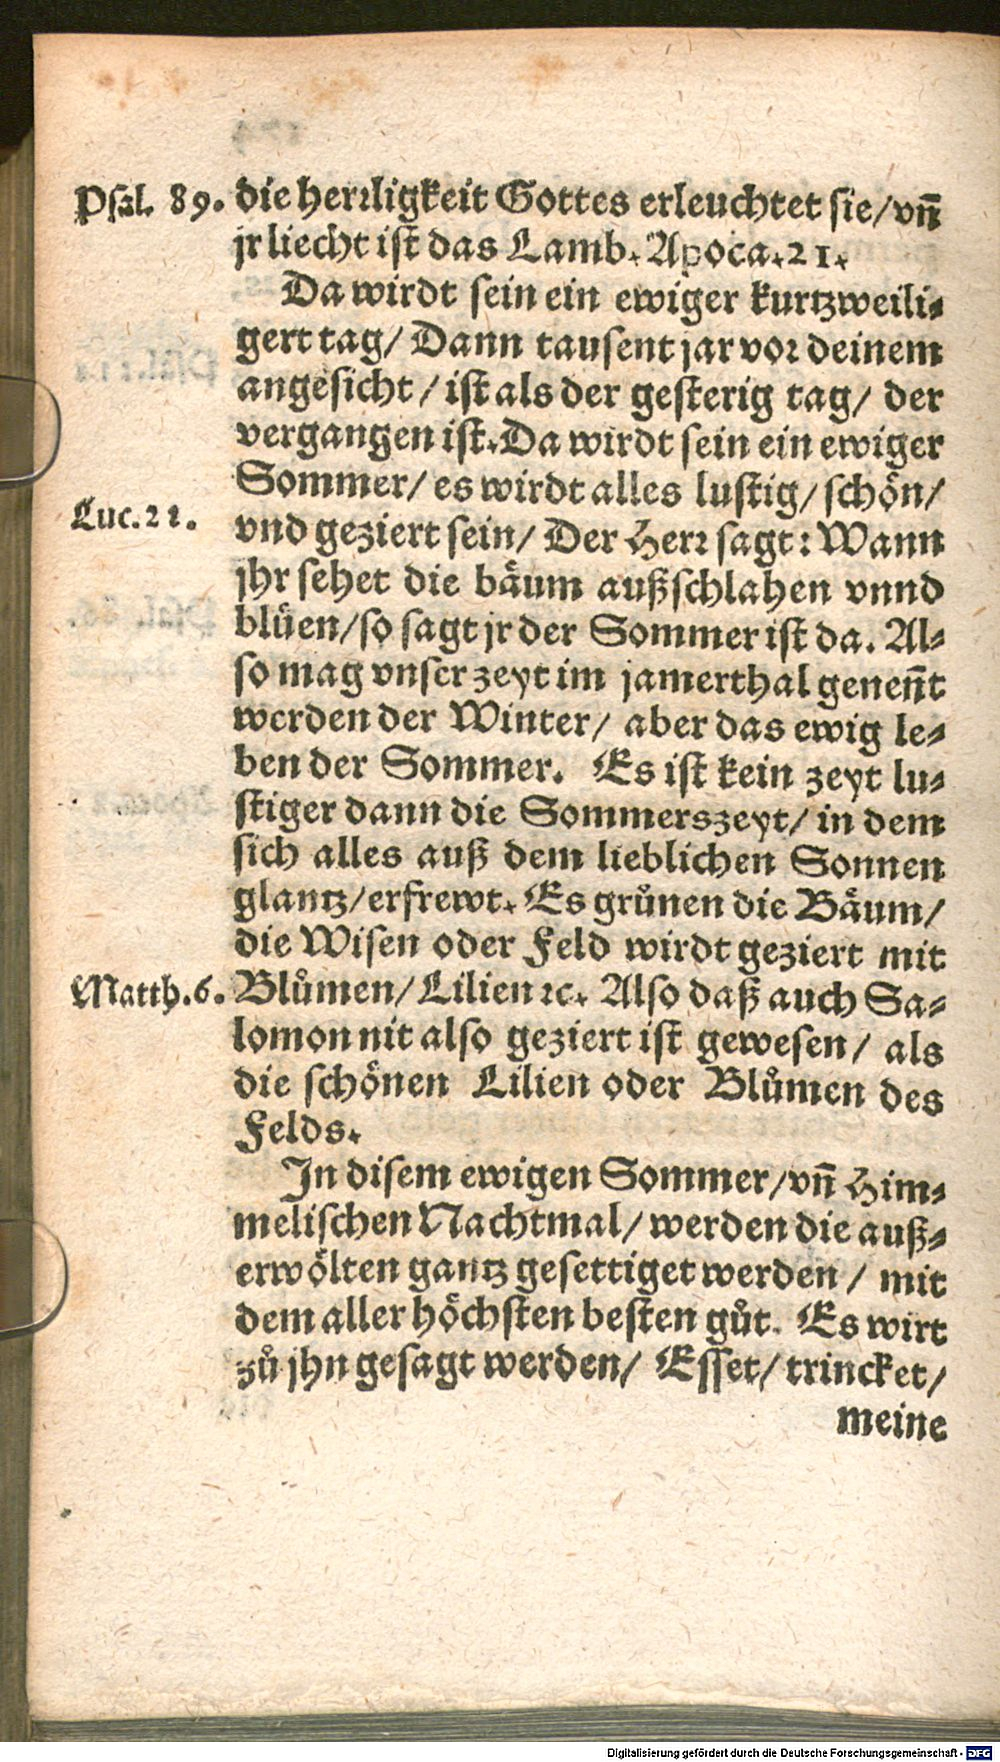 Psal. 89. die herrligkeit Gottes erleuchtet sie/vñ
jr liecht ist das Lamb. Apoca.21.
Da wirdt sein ein ewiger kurtzweili-
gert tag/ Dann tausent jar vor deinem
angesicht/ ist als der gesterig tag/ der
vergangen ist. Da wirdt sein ein ewiger
Sommer/ es wirdt alles lustig/ schön/
Luc.21. vnd geziert sein/ Der Herr sagt: Wann
jhr sehet die bäum außschlahen vnnd
blüen/so sagt jr der Sommer ist da. Al-
so mag vnser zeyt im jamerthal geneñt
werden der Winter/ aber das ewig le-
ben der Sommer. Es ist kein zeyt lu-
stiger dann die Sommerszeyt/ in dem
sich alles auß dem lieblichen Sonnen
glantz/erfrewt. Es grůnen die Bäum/
die Wisen oder Feld wirdt geziert mit
Matth.6. Blůmen/ Lilien ꝛc. Also daß auch Sa-
lomon nit also geziert ist gewesen/ als
die schönen Lilien oder Blůmen des
Felds.
In disem ewigen Sommer/vñ Him-
melischen Nachtmal/ werden die auß-
erwölten gantz gesettiget werden/ mit
dem aller höchsten besten gůt. Es wirt
zů jhn gesagt werden/ Esset/ trincket/
meine
Digitalisierung gefördert durch die Deutsche Forschungsgemeinschaft - DFG